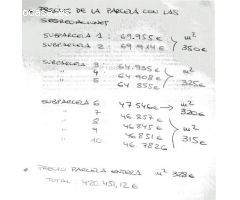 PRECIOS DE LA PARCELA CON LAS
SEGREGACIONES
SUBPARCELA 1 : 69.955 € m²
SUBPARCELA 2 : 69.914 € 350€
SUBPARCELA 3 : 64.935 € m²
" 4 64.908 € 325€
" 5 64.855 €
SUBPARCELA 6 47.546 € m² 320€
" 7 46.857 € m²
" 8 46.845 € 315€
" 9 46.851 €
" 10 46.782 €
• PRECIO PARCELA ENTERA m² 328€
TOTAL : 420.451,12 €